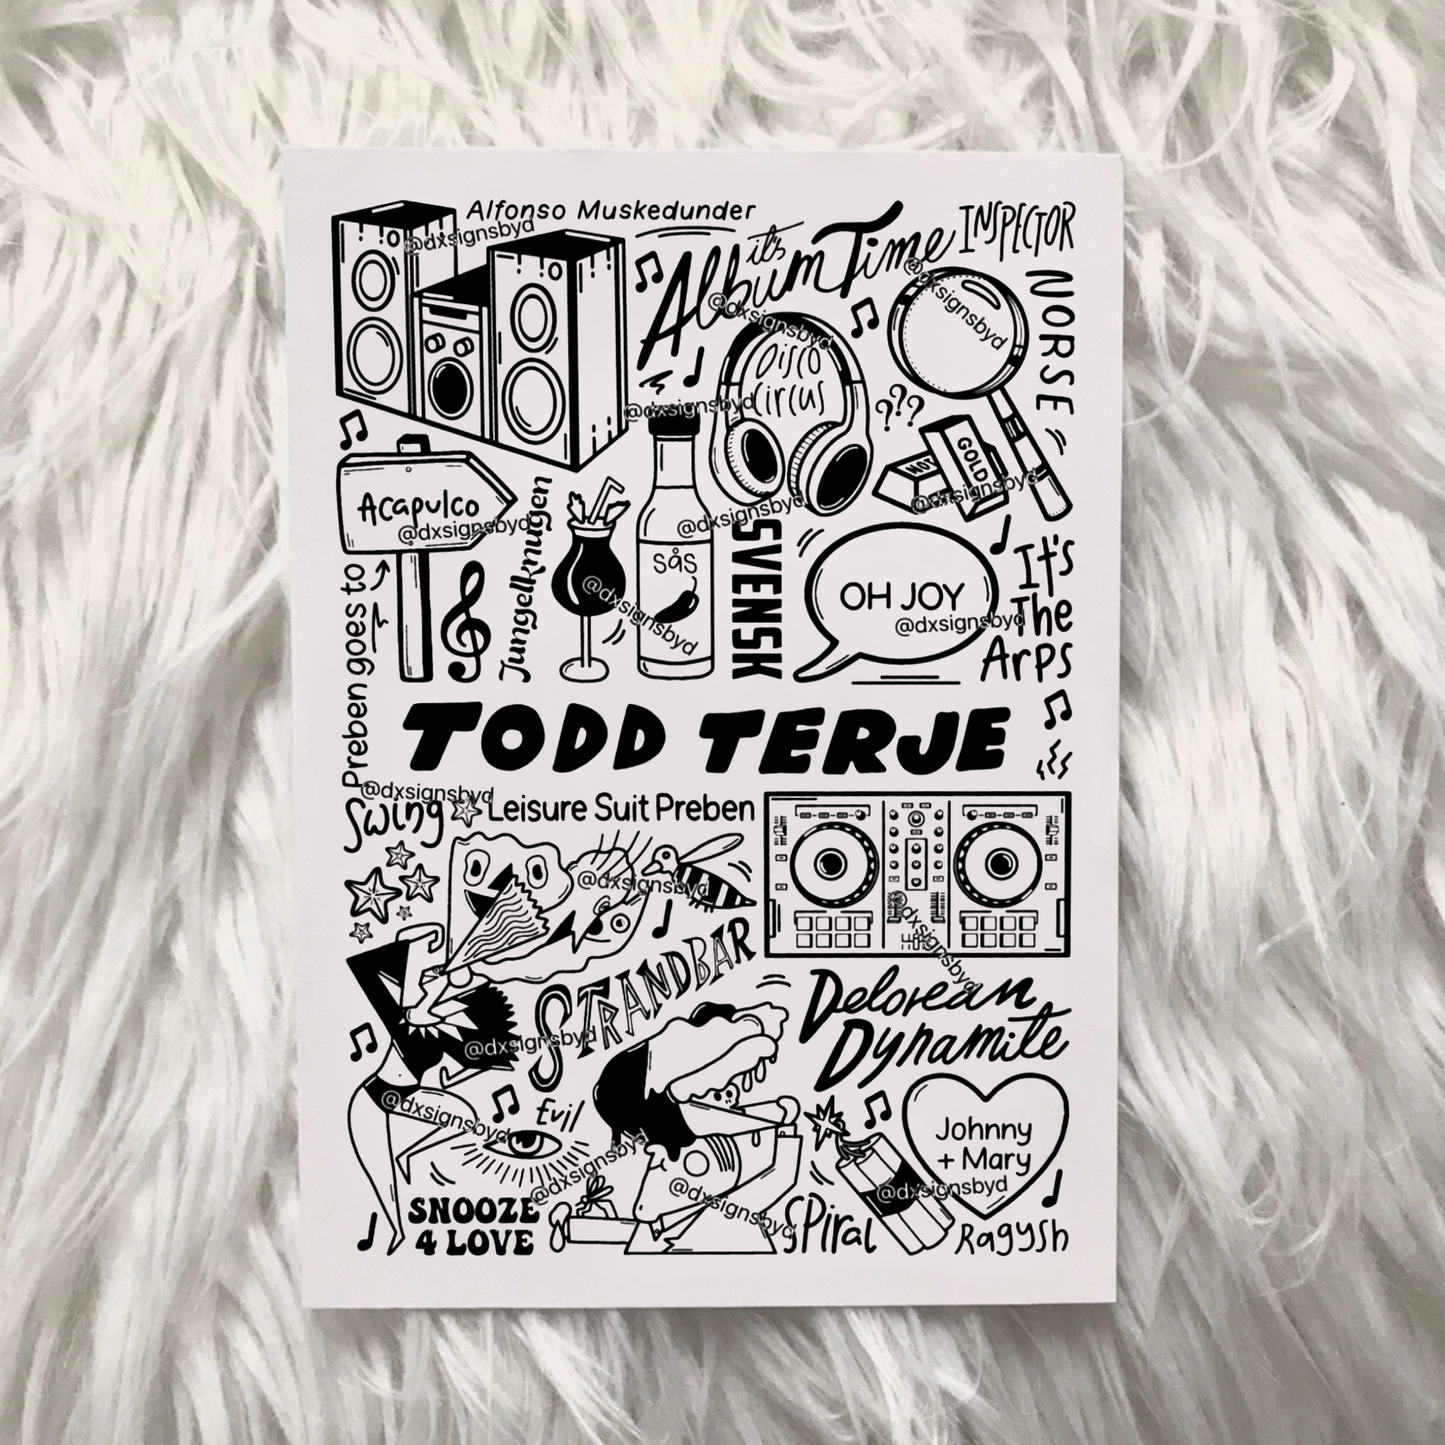 Alfonso Muskedunder
@dxsignsbyd
it's
Album Time
@dxsignsbyd
INSPECTOR
NORSE
@dxsignsbyd
Disco
Circus
@dxsignsbyd
???
NOT
GOLD
@dxsignsbyd
Acapulco
@dxsignsbyd
Preben goes to
Jungelknugen
@dxsignsbyd
sås
@dxsignsbyd
SVENSK
OH JOY
@dxsignsbyd
It's
The
Arps
TODD TERJE
@dxsignsbyd
Swing
Leisure Suit Preben
@dxsignsbyd
STRANDBAR
@dxsignsbyd
@dxsignsbyd
Delorean
Dynamite
@dxsignsbyd
Evil
@dxsignsbyd
SNOOZE
4 LOVE
@dxsignsbyd
Spiral
Johnny
+ Mary
@dxsignsbyd
Ragysh